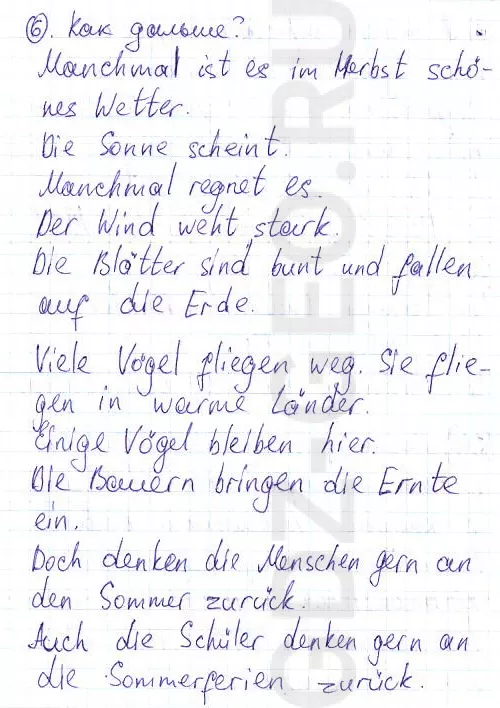 6. Как дальше?
Manchmal ist es im Herbst schö-
nes Wetter.
Die Sonne scheint.
Manchmal regnet es.
Der Wind weht stark.
Die Blätter sind bunt und fallen
auf die Erde.
Viele Vögel fliegen weg. Sie flie-
gen in warme Länder.
Einige Vögel bleiben hier.
Die Bauern bringen die Ernte
ein.
Doch denken die Menschen gern an
den Sommer zurück.
Auch die Schüler denken gern an
die Sommerferien zurück.
GDZ-GEO.RU